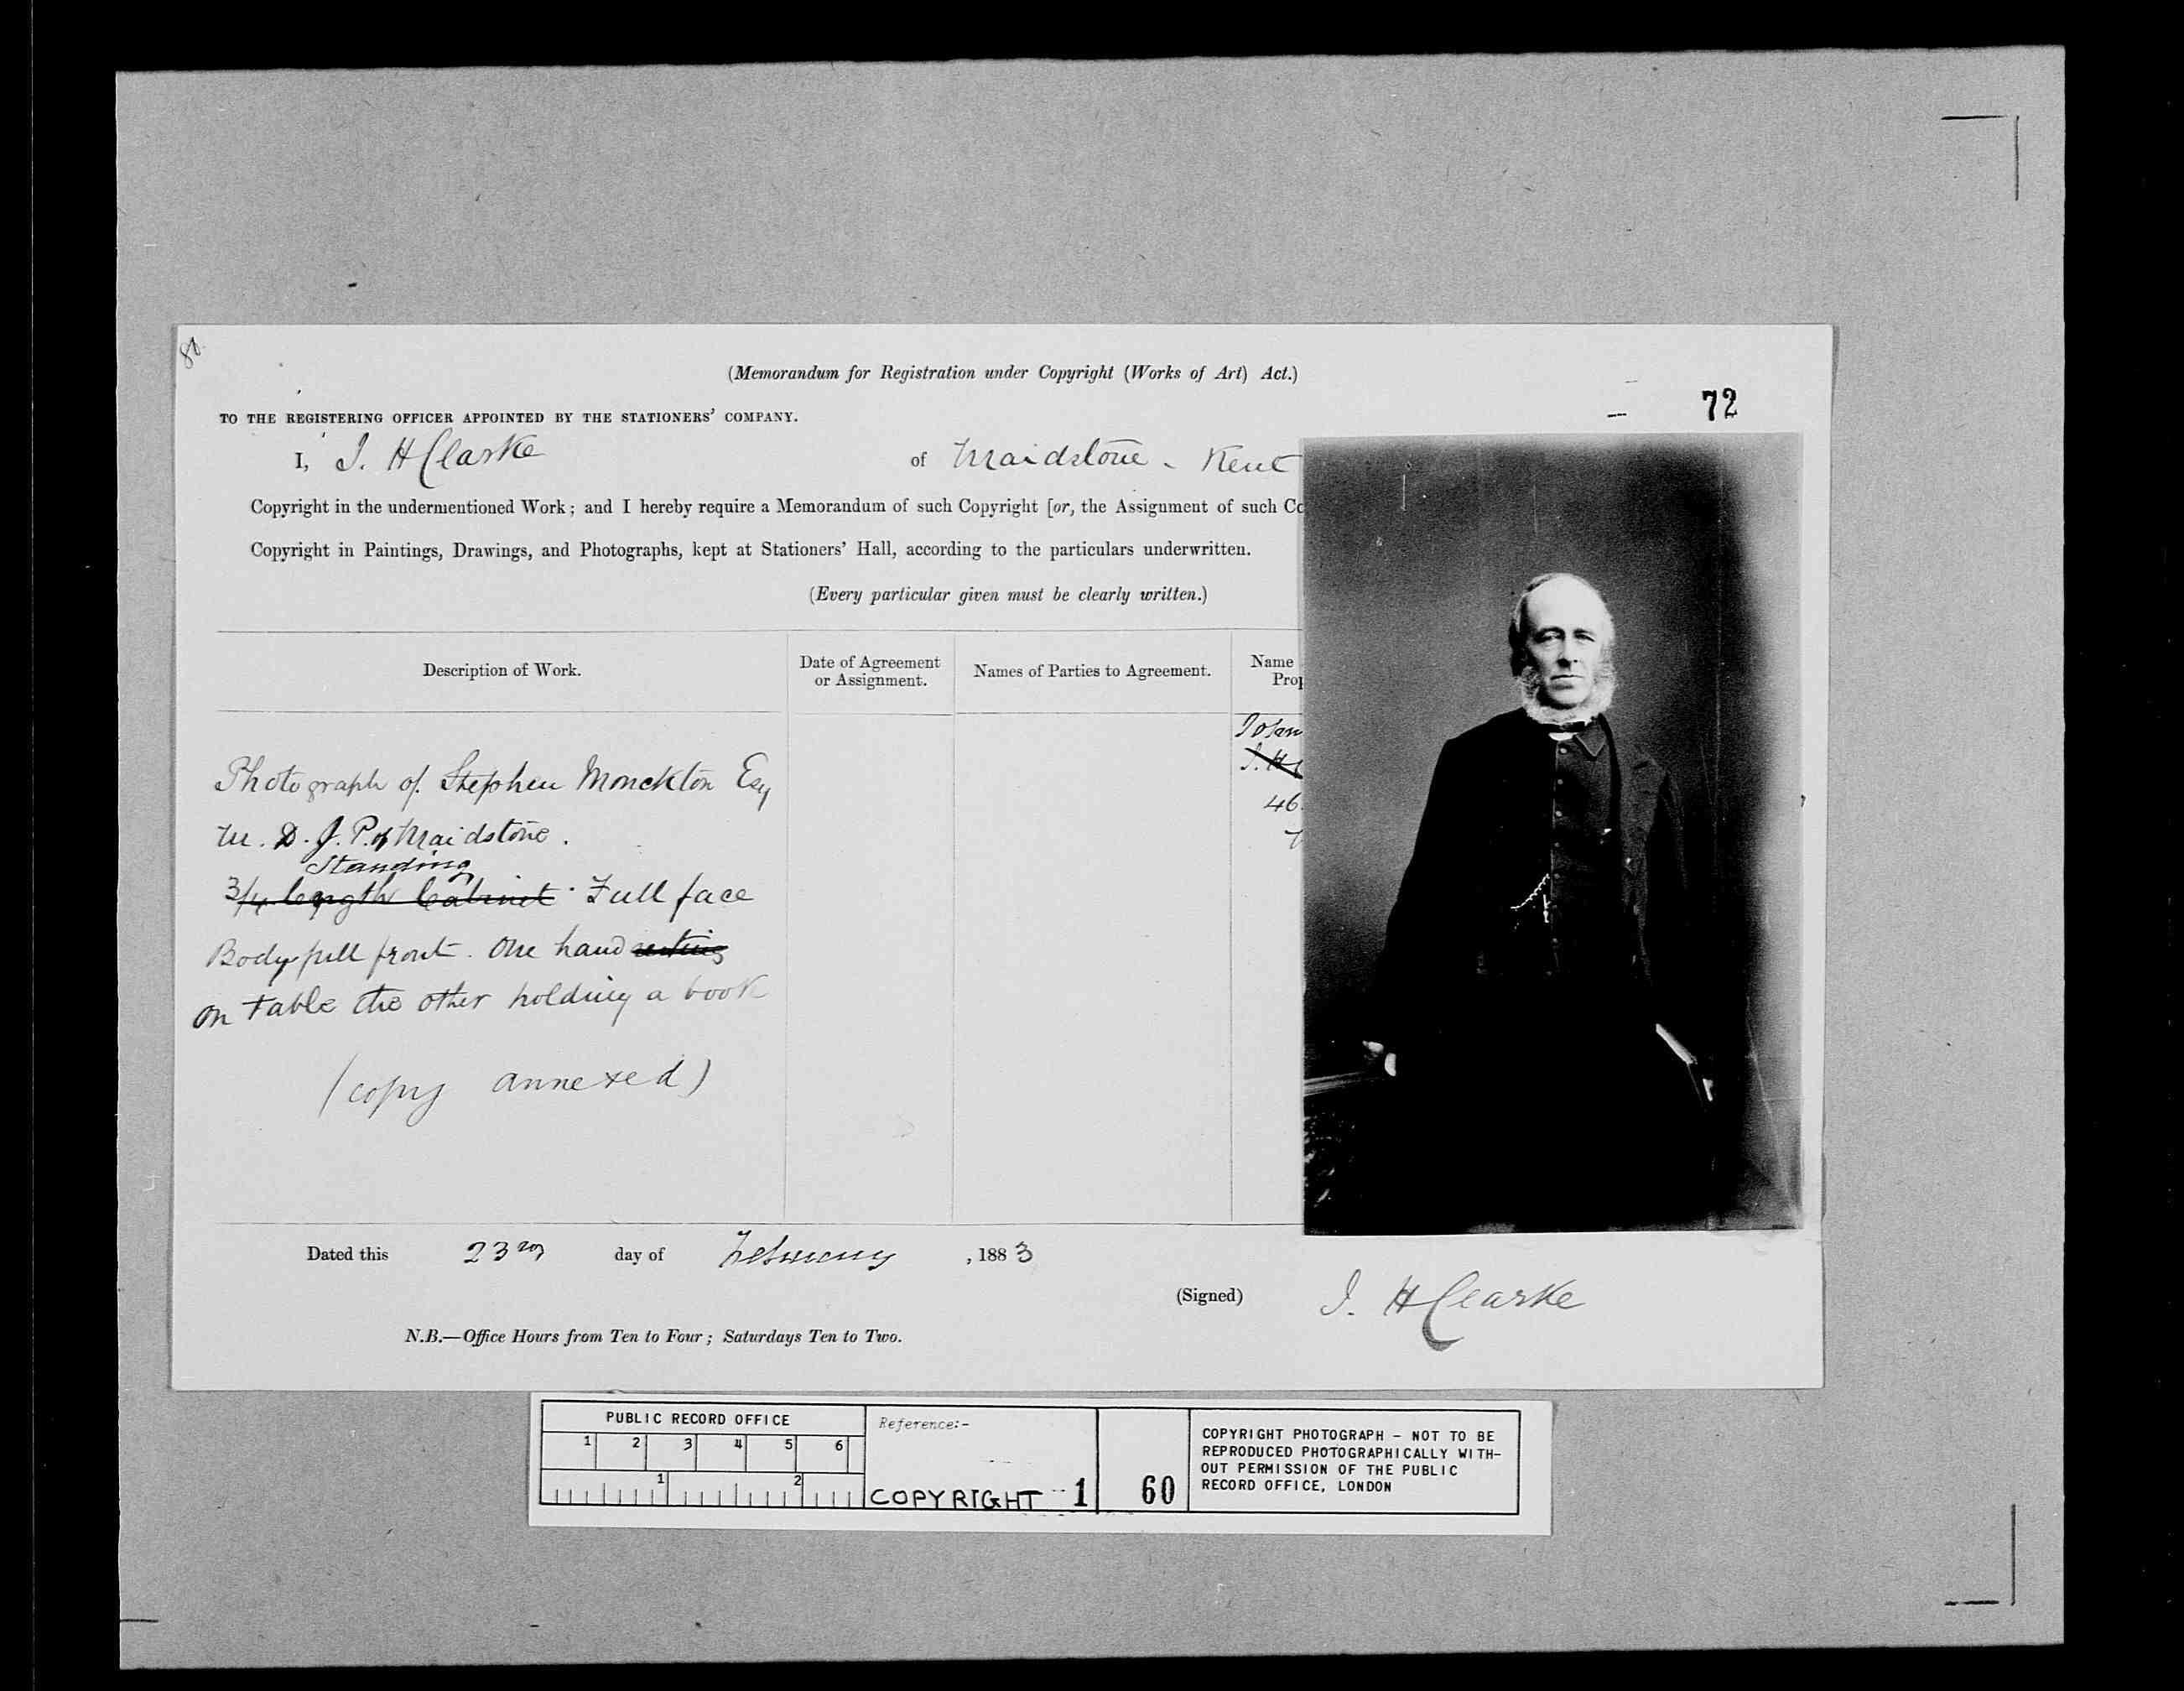 (Memorandum for Registration under Copyright (Works of Art) Act.)
72
TO THE REGISTERING OFFICER APPOINTED BY THE STATIONERS' COMPANY.
I, J. H Clarke of Maidstone - Kent
Copyright in the undermentioned Work; and I hereby require a Memorandum of such Copyright [or, the Assignment of such Co
Copyright in Paintings, Drawings, and Photographs, kept at Stationers' Hall, according to the particulars underwritten.
(Every particular given must be clearly written.)
Description of Work.
Date of Agreement
or Assignment.
Names of Parties to Agreement.
Name
Prop
J. H
46
Photograph of Stephen Monckton Esq
M. D. J. P. of Maidstone.
Standing
3/4 length Cabinet. Full face
Body full front. One hand resting
on table the other holding a book
(copy annexed)
Dated this 23rd day of February, 1883
(Signed) J. H Clarke
N.B.—Office Hours from Ten to Four; Saturdays Ten to Two.
PUBLIC RECORD OFFICE
1 2 3 4 5 6
1 2
Reference:-
COPYRIGHT 1 60
COPYRIGHT PHOTOGRAPH - NOT TO BE
REPRODUCED PHOTOGRAPHICALLY WITH-
OUT PERMISSION OF THE PUBLIC
RECORD OFFICE, LONDON